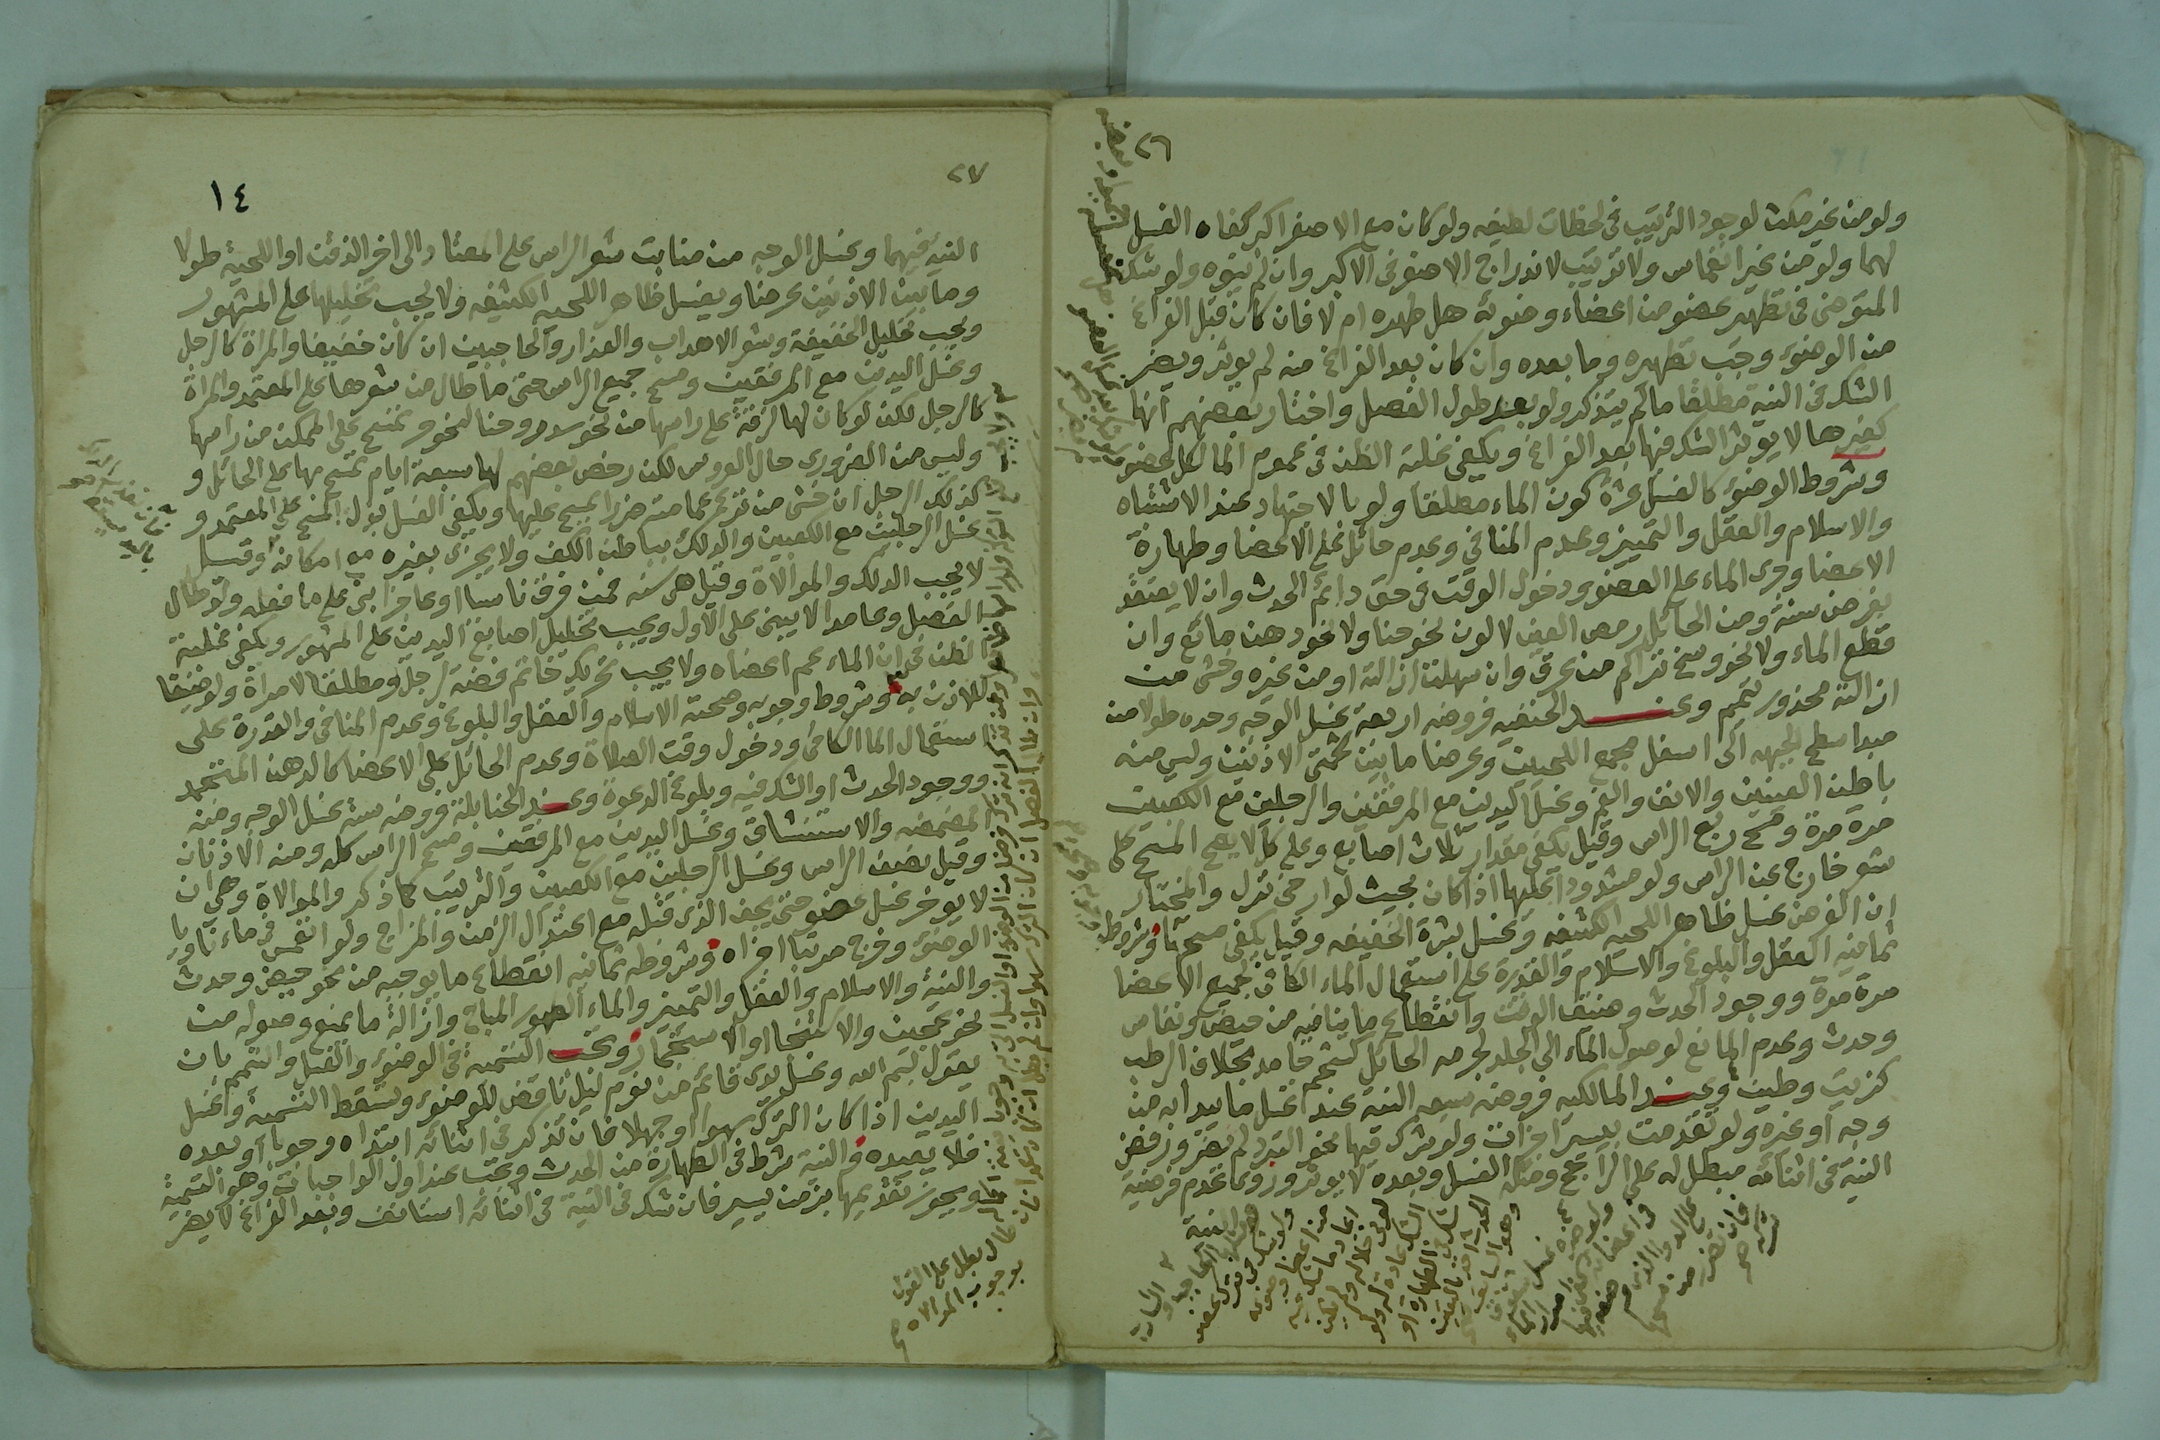 ٢٦
ولو من غير مكث لوجود الترتيب في لحظات لطيفه ولو كان مع الاصغر اكبر كفاه الغسل
لهما ولو من غير انغماس ولا ترتيب لاندراج الاصغر في الاكبر وان لم ينوه ولو شك
المتوضي في تطهير عضو من اعضاء وضوئه هل طهره ام لا فان كان قبل الفراغ
من الوضوء وجب تطهيره وما بعده وان كان بعد الفراغ منه لم يوثر ويضر
الشك في النية مطلقا ما لم يتذكر ولو بعد طول الفصل واختار بعضهم انها
كغيرها لا يوثر الشك فيها بعد الفراغ ويكفي غلبة الظن في عموم الماء لكل عضو
وشروط الوضوء كالغسل عشرة كون الماء مطلقا ولو بالاجتهاد عند الاشتباه
والاسلام والعقل والتمييز وعدم المنافي وعدم حائل على الاعضا وطهارة
الاعضا وجري الماء على العضو ودخول الوقت في حق دائم الحدث وان لا يعتقد
بفرض سنة ومن الحائل رمص العين لا لون نحو حنا ولا نحو دهن مائع وان
قطع الماء ولا نحو وسخ تراكم من عرق وان سهلت ازالته او من غيره وخشي من
ازالته محذور تيمم وعند الحنفيه فروضه اربعة غسل الوجه وحده طولا من
مبدا سطح الجبهه الى اسفل مجمع اللحيين وعرضا ما بين شحمتي الاذنين وليس منه
باطن العينين والانف والفم وغسل اليدين مع المرفقين والرجلين مع الكعبين
مرة مرة ومسح ربع الراس وقيل يكفي مقدار ثلاث اصابع وعلى كل لا يصح المسح على
شعر خارج عن الراس ولو مشدودا عليها اذا كان بحيث لو ارخي نزل والمختار
ان الفرض غسل ظاهر اللحيه الكثيفه وغسل بشرة الخفيفه وقيل يكفي مسحها وشروط
ثمانيه العقل والبلوغ والاسلام والقدرة على استعمال الماء الكافي لجميع الاعضا
مرة مرة ووجود الحدث وضيق الوقت وانقطاع ما ينافيه من حيض ونفاس
وحدث وعدم المانع لوصول الماء الى الجلد لجرمه الحائل كشحم جامد بخلاف الرطب
كزيت وطين وعند المالكيه فروضه سبعه النية عند غسل ما يبدا به من
وجه او غيره ولو تقدمت بيسير اجزات ولو شرك فيها نحو التبرد لم يضر ورفض
النية في اثنائه مبطل له على الراجح ومثله الغسل وبعده لا يوثر وزوتما عدم فرضية
٢٧
١٤
النية فيهما وغسل الوجه من منابت شعر الراس على المعتاد الى اخر الذقن او اللحية طولا
وما بين الاذنين عرضا ويغسل ظاهر اللحيه الكثيفه ولا يجب تخليلها على المشهور
ويجب تخليل الخفيفة وشعر الاهداب والعذار والحاجبين ان كان خفيفا والمراة كالرجل
وغسل اليدين مع المرفقين ومسح جميع الراس حتى ما طال من شعرها على المعتمد والمراة
كالرجل لكن لو كان لها لزقة على راسها من نحو سدر وحنا لنحو عرس تمسح على الممكن من راسها
وليس من الضروري حال العروس لكن رخص بعضهم لها سبعة ايام تمسح فيها على الحائل و
كذلك الرجل ان خشي من نزع عمامته ضررا يمسح عليها ويكفي الغسل بدل المسح على المعتمد و
غسل الرجلين مع الكعبين والدلك بباطن الكف ولا يجزئ بغيره مع امكانه وقيل
لا يجب الدلك والموالاة وقيل هي سنة فمن فرق ناسيا او عاجزا بنى على ما فعله ولو طال
الفصل وعامدا لا يبني على الاول ويجب تخليل اصابع اليدين على المشهور ويكفي غلبة
الظن في ان الماء عم اعضاه ولا يجب تحريك خاتم فضة لرجل ومطلقا لامراة ولو ضيقا
للاذن به وشروط وجوبه وصحته الاسلام والعقل والبلوغ وعدم المنافي والقدرة على
استعمال الماء الكافي ودخول وقت الصلاة وعدم الحائل على الاعضا كالدهن المتجمد
ووجود الحدث او الشك فيه وبلوغ الدعوة وعند الحنابلة فروضه ستة غسل الوجه ومنه
المضمضه والاستنشاق وغسل اليدين مع المرفقين ومسح الراس كله ومنه الاذنان
وقيل نصف الراس وغسل الرجلين مع الكعبين والترتيب كما ذكر والموالاة وهي ان
لا يوخر غسل عضو حتى يجف الذي قبله مع اعتدال الزمن والمزاج ولو انغمس في ماء ناويا
الوضوء وخرج مرتبا اجزاه وشروطه ثمانيه انقطاع ما يوجبه من نحو حيض وحدث
والنية والاسلام والعقل والتمييز والماء الطهور المباح وازالة ما يمنع وصوله من
نحو عجين والاستنجا او الاستجمار وتجب التسمية في الوضوء والغسل والتيمم بان
يقول بسم الله وغسل يدي قائم من نوم ليل ناقض للوضوء وتسقط التسمية وغسل
اليدين اذا كان الترك سهوا او جهلا فان تذكر في اثنائه ابتداه وجوبا او بعده
فلا يعيده والنية شرط في الطهارة من الحدث وتجب عند اول الواجبات وهو التسمية
ويجوز تقديمها بزمن يسير فان شك في النية في اثنائه استانف وبعد الفراغ لا يضر
طال بطل على القول
بوجوب الموالاه